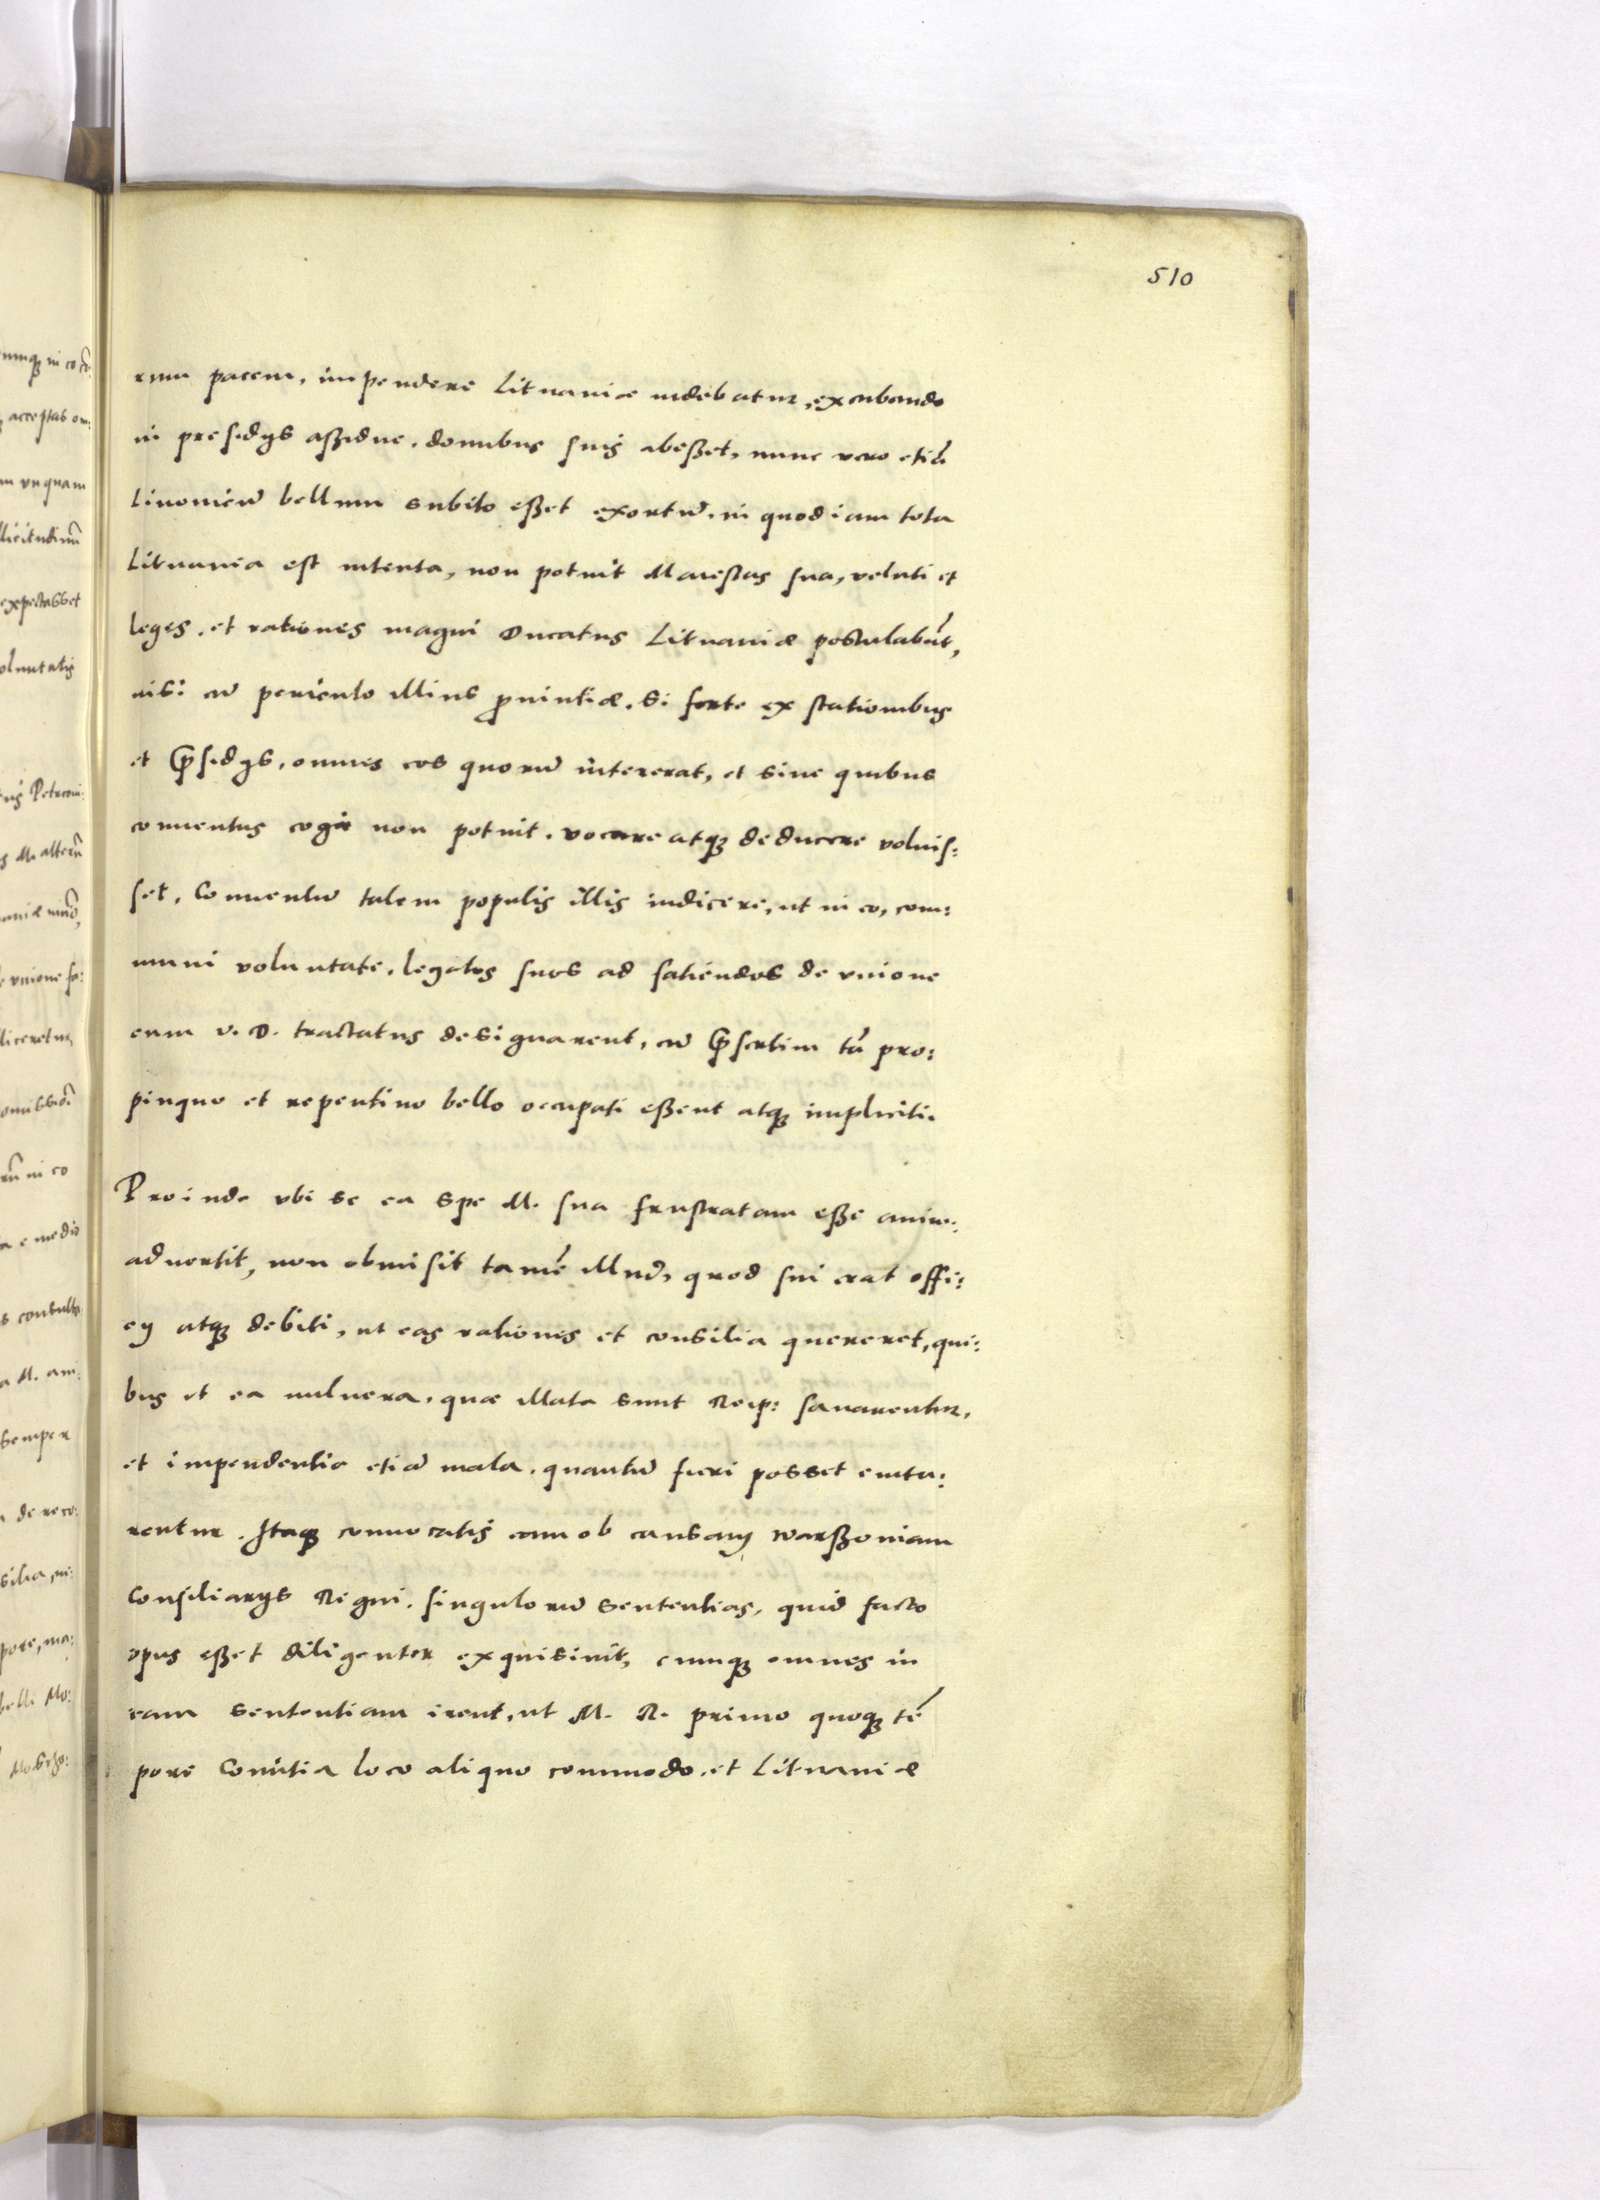 510
rum pacem, impendere Lituaniæ uidebatur, excubando
in presidijs assidue, domibus suis abesset, nunc vero etiã
Liuonicũ bellum subito esset exortũ, in quod iam tota
Lituania est intenta, non potuit Maiestas sua, veluti et
leges, et rationes magni Ducatus Lituaniæ postulabãt,
nisi cũ periculo illius ꝓuintiæ, si forte ex stationibus
et p̃sidijs, omnes eos quorũ intererat, et sine quibus
conuentus cogi non potuit, vocare atqꝫ deducere voluis:
set, Conuentũ talem populis illis indicere, ut in eo, com:
muni voluntate, legatos suos ad faciendos de vnione
cum v. D. tractatus designarent, cũ p̃sertim tã pro:
pinquo et repentino bello occupati essent atqꝫ impliciti.
Proinde vbi se ea spe M. sua frustratam esse anim:
aduertit, non obmisit tamẽ illud, quod sui erat offi:
cij atqꝫ debiti, ut eas rationes et consilia quereret, qui:
bus et ea uulnera, quæ illata sunt Reip: sanarentur,
et impendentia etiã mala, quantũ fieri posset euita:
rentur. Itaqꝫ conuocatis eam ob causam Warssouiam
Consiliarijs Regni, singulorũ sententias, quid facto
opus esset diligenter exquisiuit, cumqꝫ omnes in
eam sententiam irent, ut M. R. primo quoqꝫ tẽ
pore Comitia loco aliquo commodo, et Lituaniæ